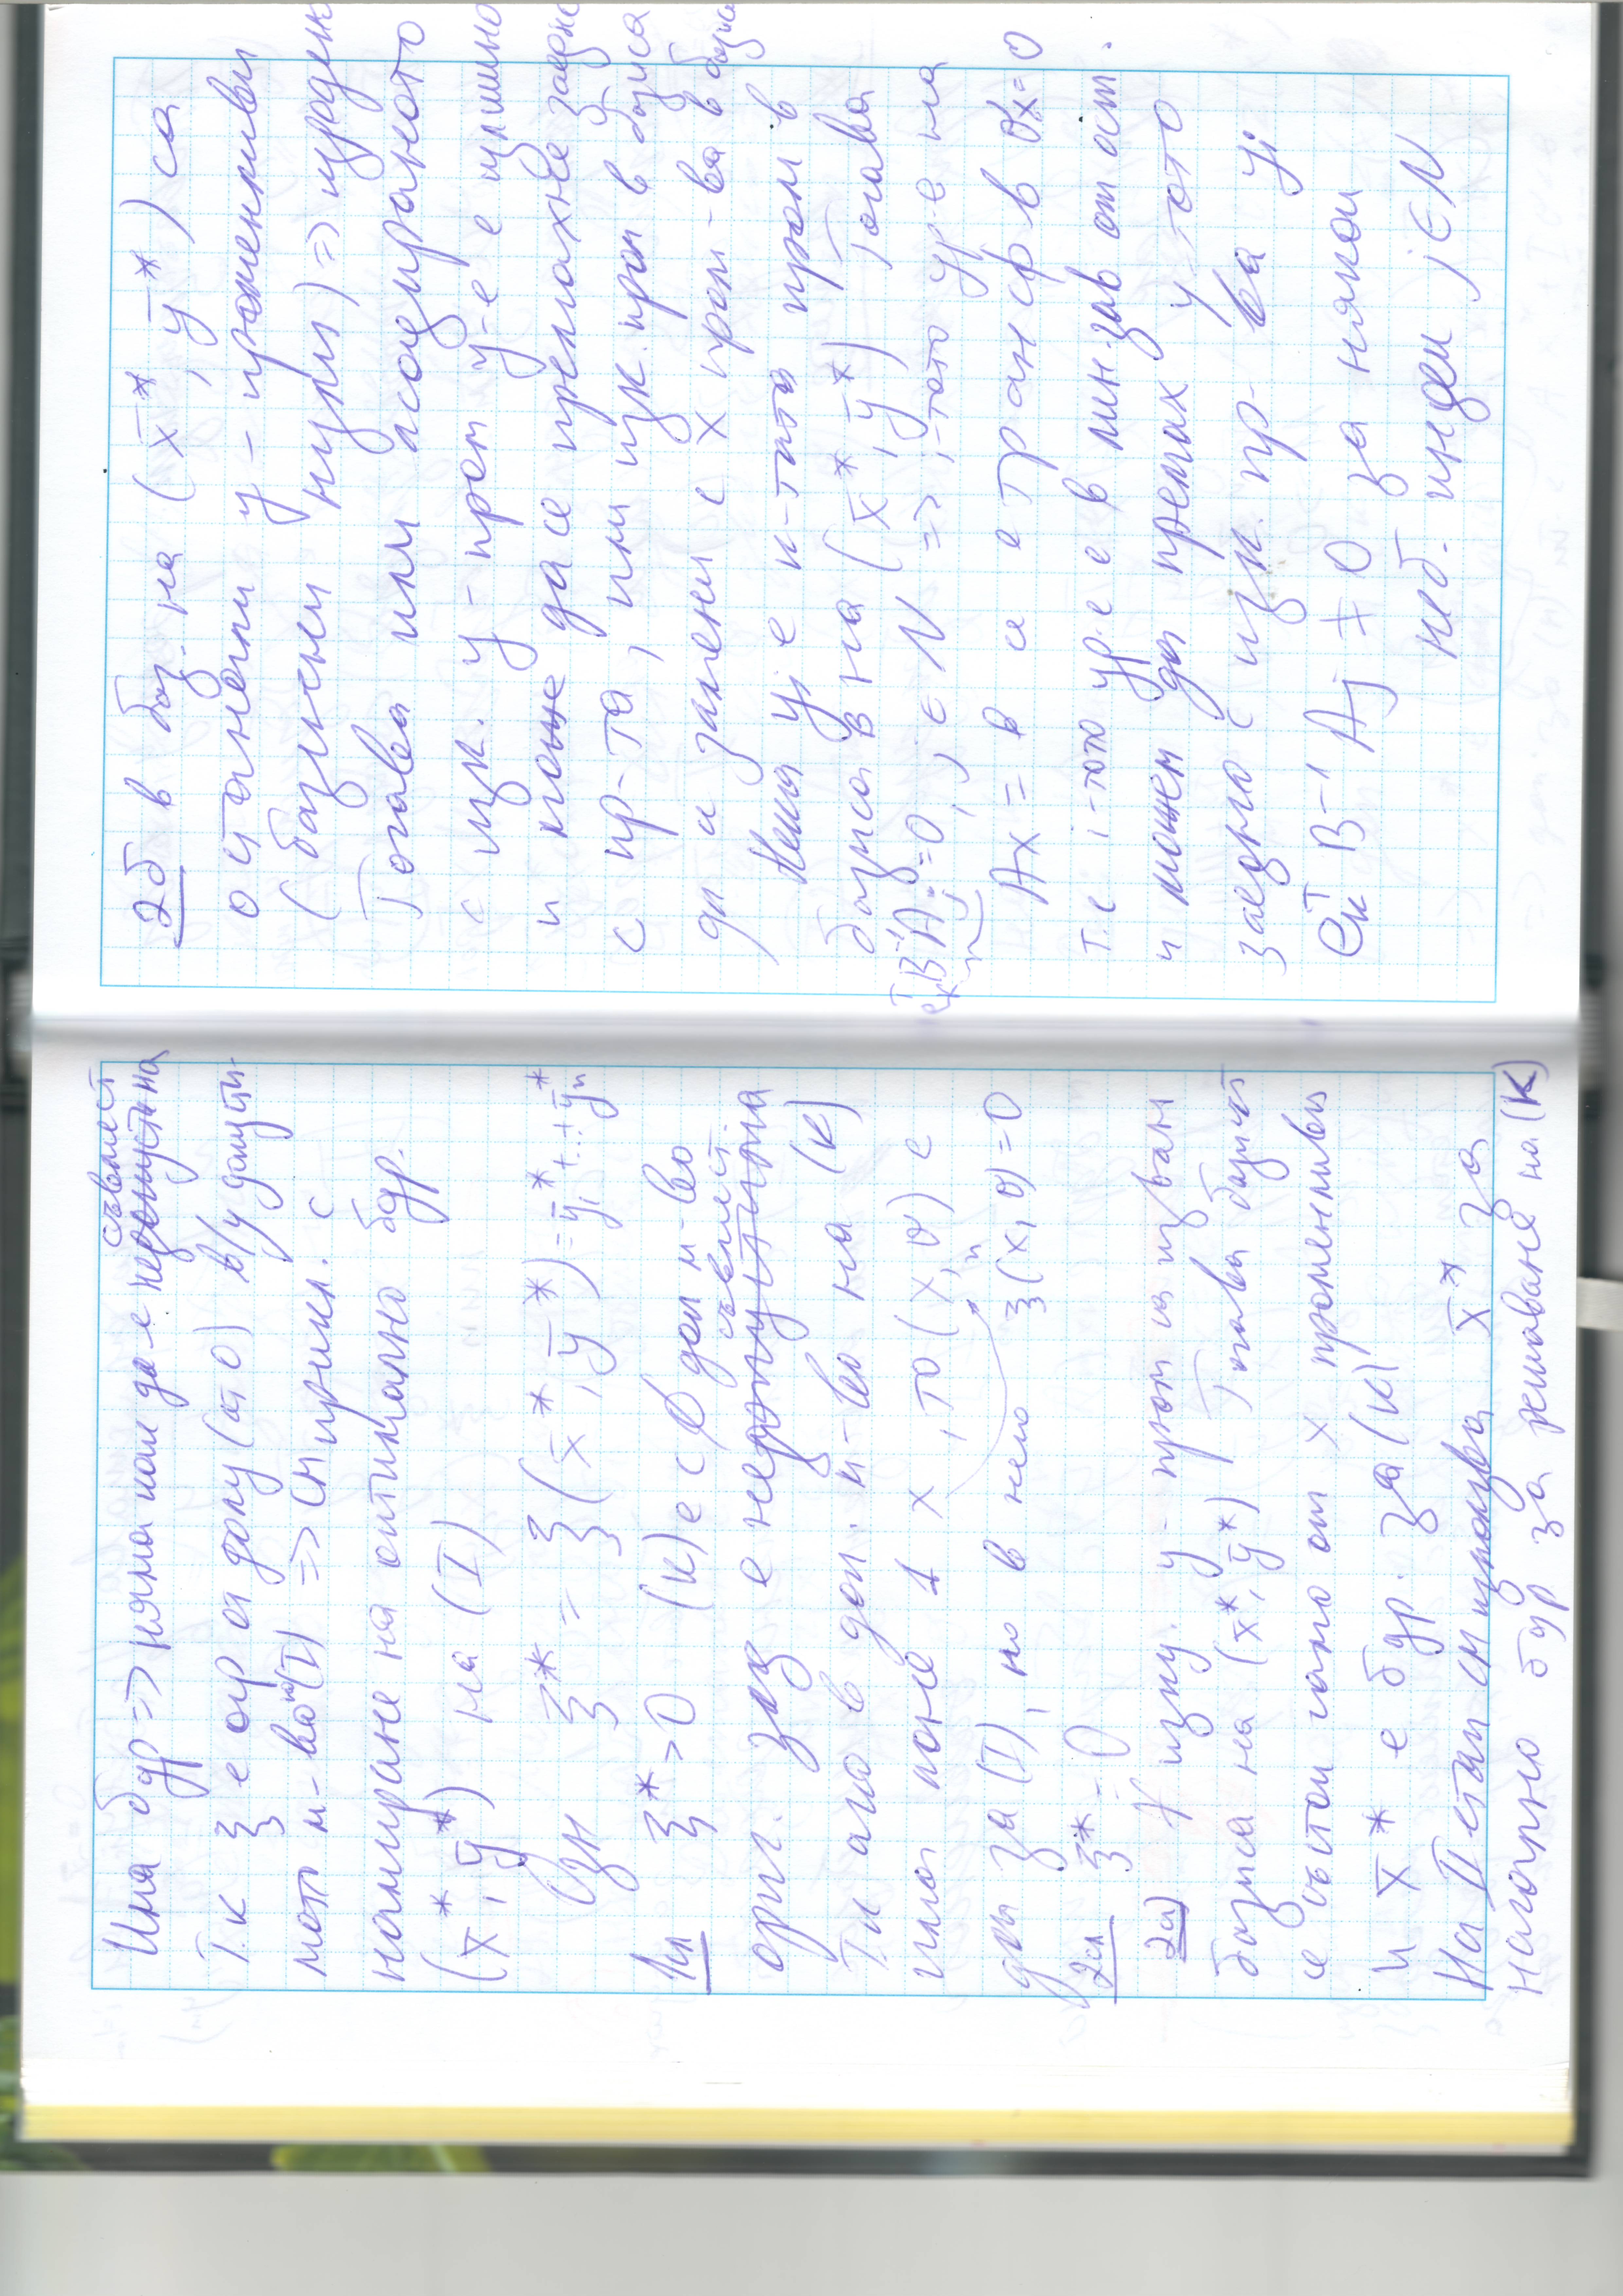 Има бдр => няма как да е недопустима
съвмест
Т.к ξ е огр от долу (от 0) в/у допусти-
мото м-во на (I) => СМ прикл. с
намиране на оптимално бдр.
(x̄*, ȳ*) на (I)
Озн ξ* = ξ(x̄*, ȳ*) = ȳ₁* + ... + ȳₙ*
1сл ξ* > 0 (К) е с ∅ доп м-во
съвмест.
ориг. зад е недопустима
Т.к ако в доп. м-во на (К)
има поне 1 x, то (x, 0) е
доп за (I), но в него ξ(x, 0) = 0
2сл ξ* = 0
2а) ∀ изку. y-пром са извън
базиса на (x̄*, ȳ*). Тогава базисът
се състои само от x променливи
и x̄* е бдр. за (К)
На II етап см използва x̄* за
начално бдр за решаване на (К)
2б в баз. на (x̄*, ȳ*) са
останали y-променливи
(базисни нули) => изроден
Тогава или асоциираното
с изк. y-пром у-е е излишно
и може да се премахне заедно
с пр-та, или изк. пром в базиса
да и заменим с x пром-ва в базиса
Нека yᵢ е к-тата пром в
базиса B на (x̄*, ȳ*). Тогава
eₖᵀB⁻¹Aⱼ = 0, j ∈ N => i-тото ур-е на
Ax = b се трансф в 0ᵀx = 0
т.е i-тото ур.е е в лин. зав от ост.
и можем да премах. y тото
заедно с изк. пр-ва yᵢ
eₖᵀ B⁻¹ Aⱼ ≠ 0 за някой
неб. индекс j ∈ N